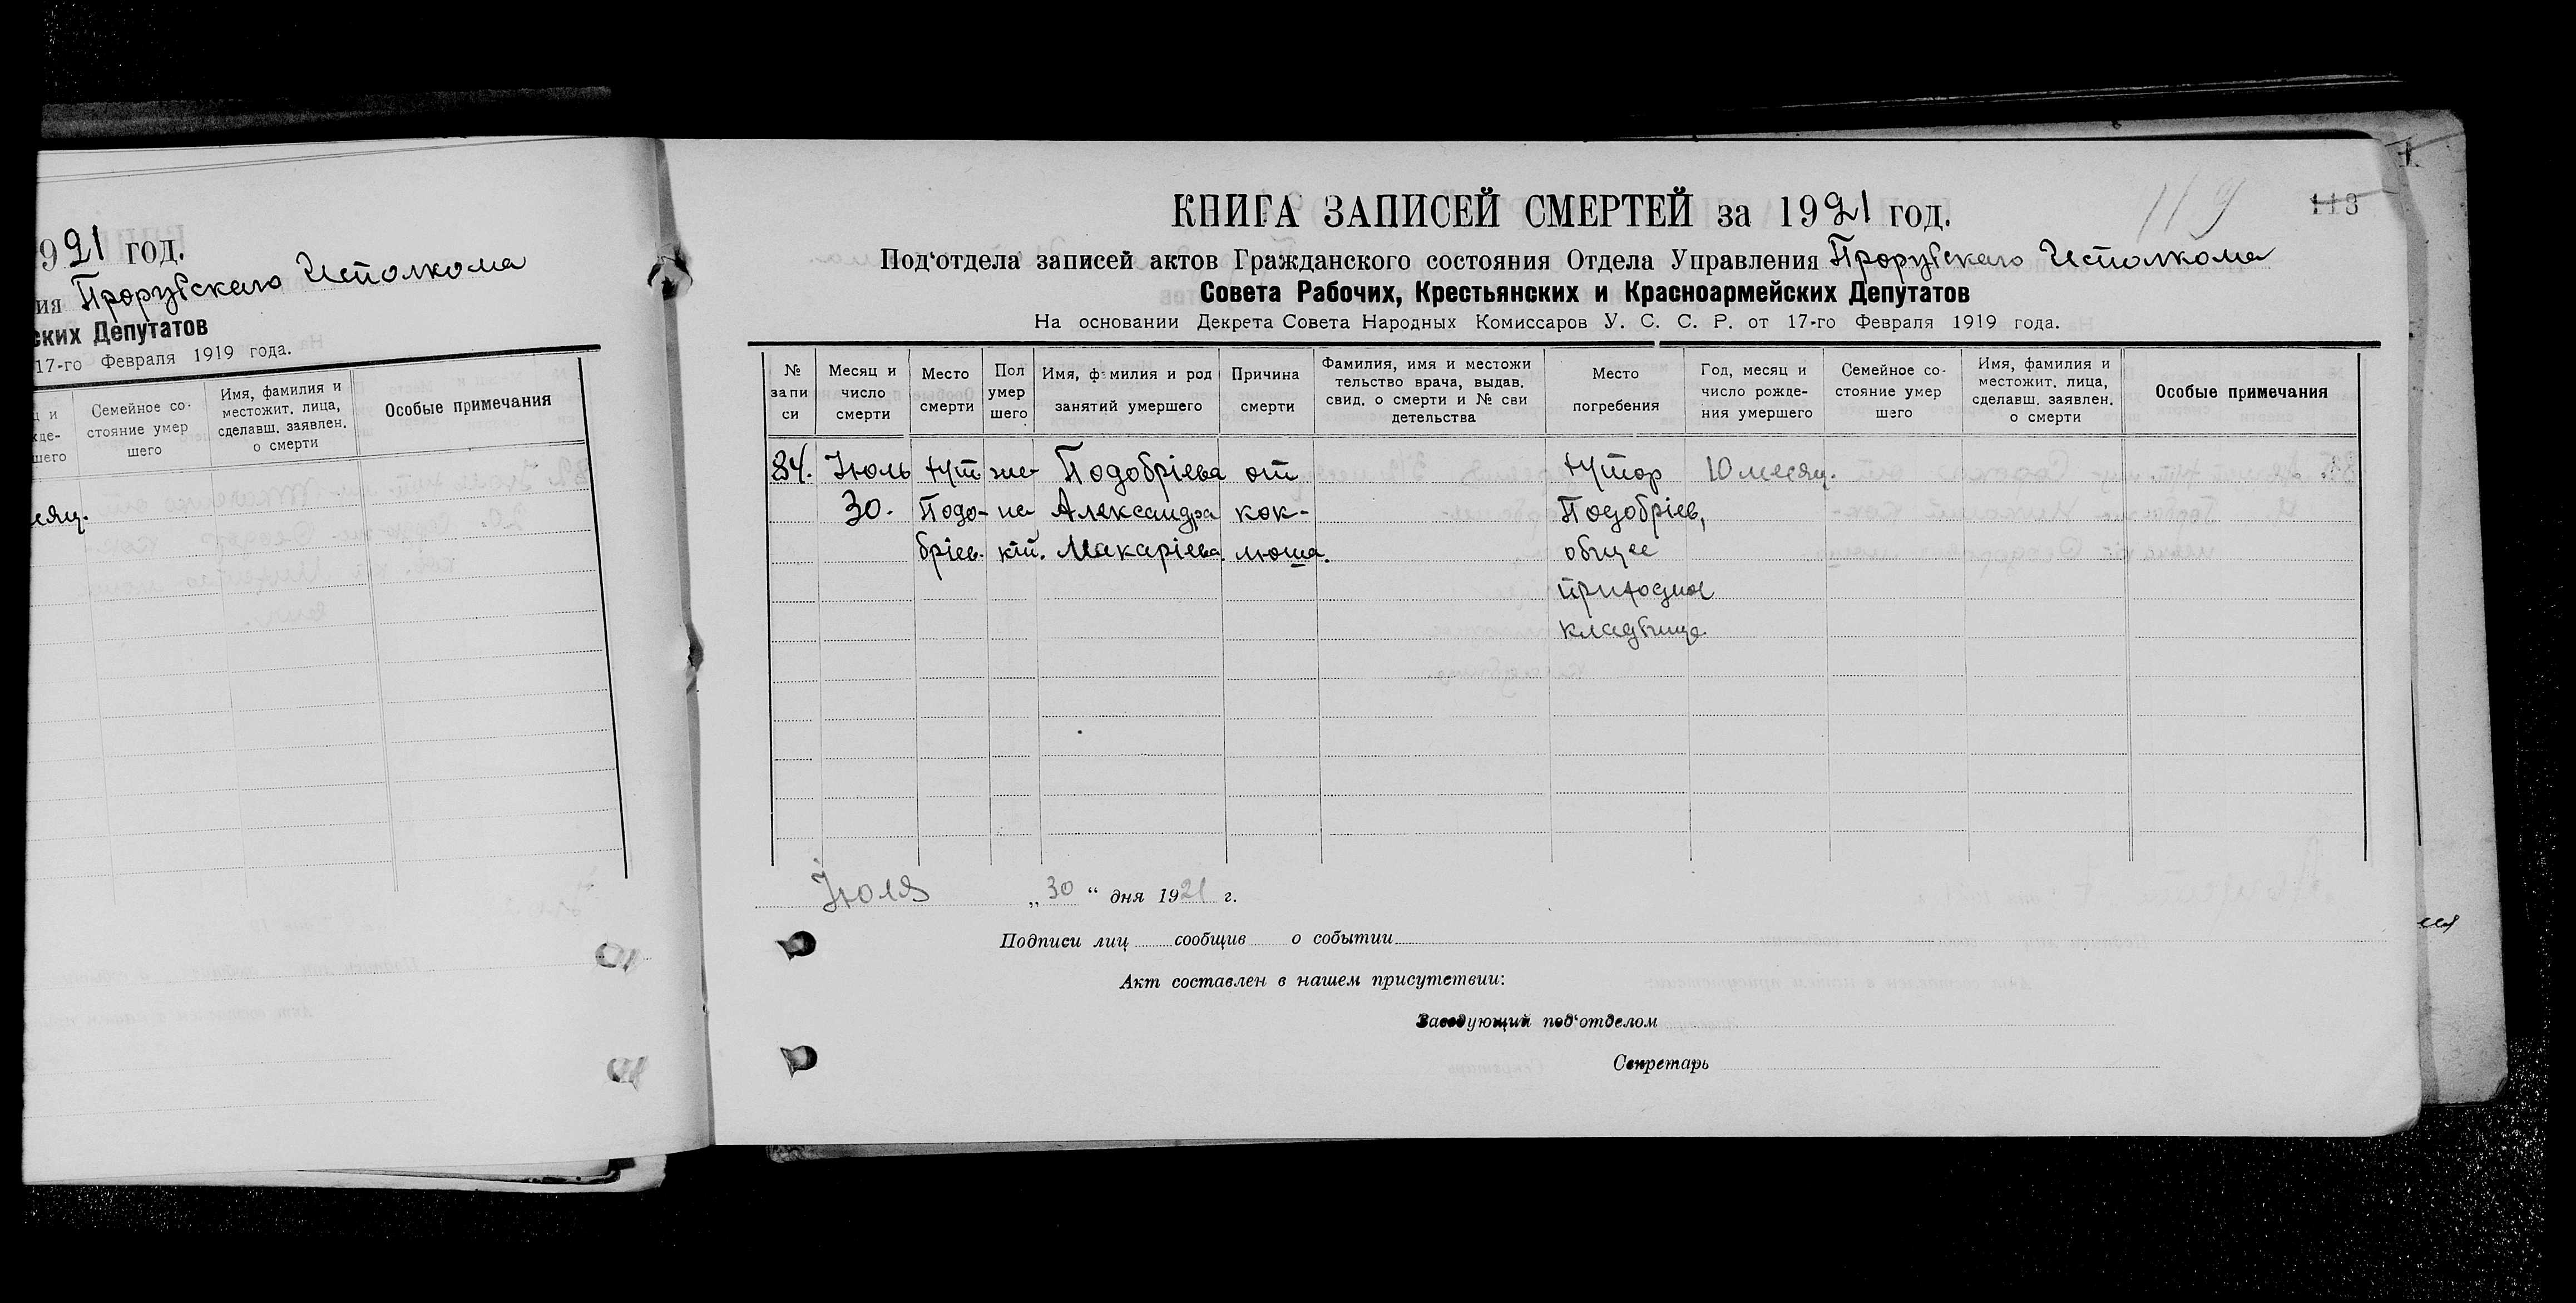 921 год.
ия Прорубскаго Исполкома
ских Депутатов
17-го Февраля 1919 года.
ц и
жде-
шего
Семейное со-
стояние умер
шего
Имя, фамилия и
местожит. лица,
сделавш. заявлен.
о смерти
Особые примечания
сяц.
119
113
КНИГА ЗАПИСЕЙ СМЕРТЕЙ за 1921 год.
Под‘отдела записей актов Гражданского состояния Отдела Управления Прорубскаго Исполкома
Совета Рабочих, Крестьянских и Красноармейских Депутатов
На основании Декрета Совета Народных Комиссаров У. С. С. Р. от 17-го Февраля 1919 года.
№
запи
си
Месяц и
число
смерти
Место
смерти
Пол
умер
шего
Имя, фамилия и род
занятий умершего
Причина
смерти
Фамилия, имя и местожи
тельство врача, выдав.
свид. о смерти и № сви
детельства
Место
погребения
Год, месяц и
число рожде-
ния умершего
Семейное со-
стояние умер
шего
Имя, фамилия и
местожит. лица,
сделавш. заявлен.
о смерти
Особые примечания
84.
Июль
30.
хут
Подо-
бріев.
же-
нс-
кій.
Подобріева
Александра
Макаріева.
от
кок-
люша.
хутор
Подобріев,
общее
приходное
кладбище.
10 месяц.
Июля „30“ дня 1921 г.
Подписи лиц сообщив о событии
Акт составлен в нашем присутствии:
Заведующий под‘отделом
Секретарь